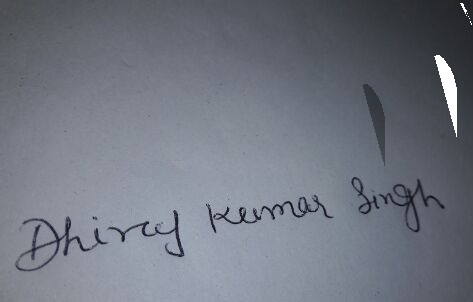 Dhiraj Kumar Singh